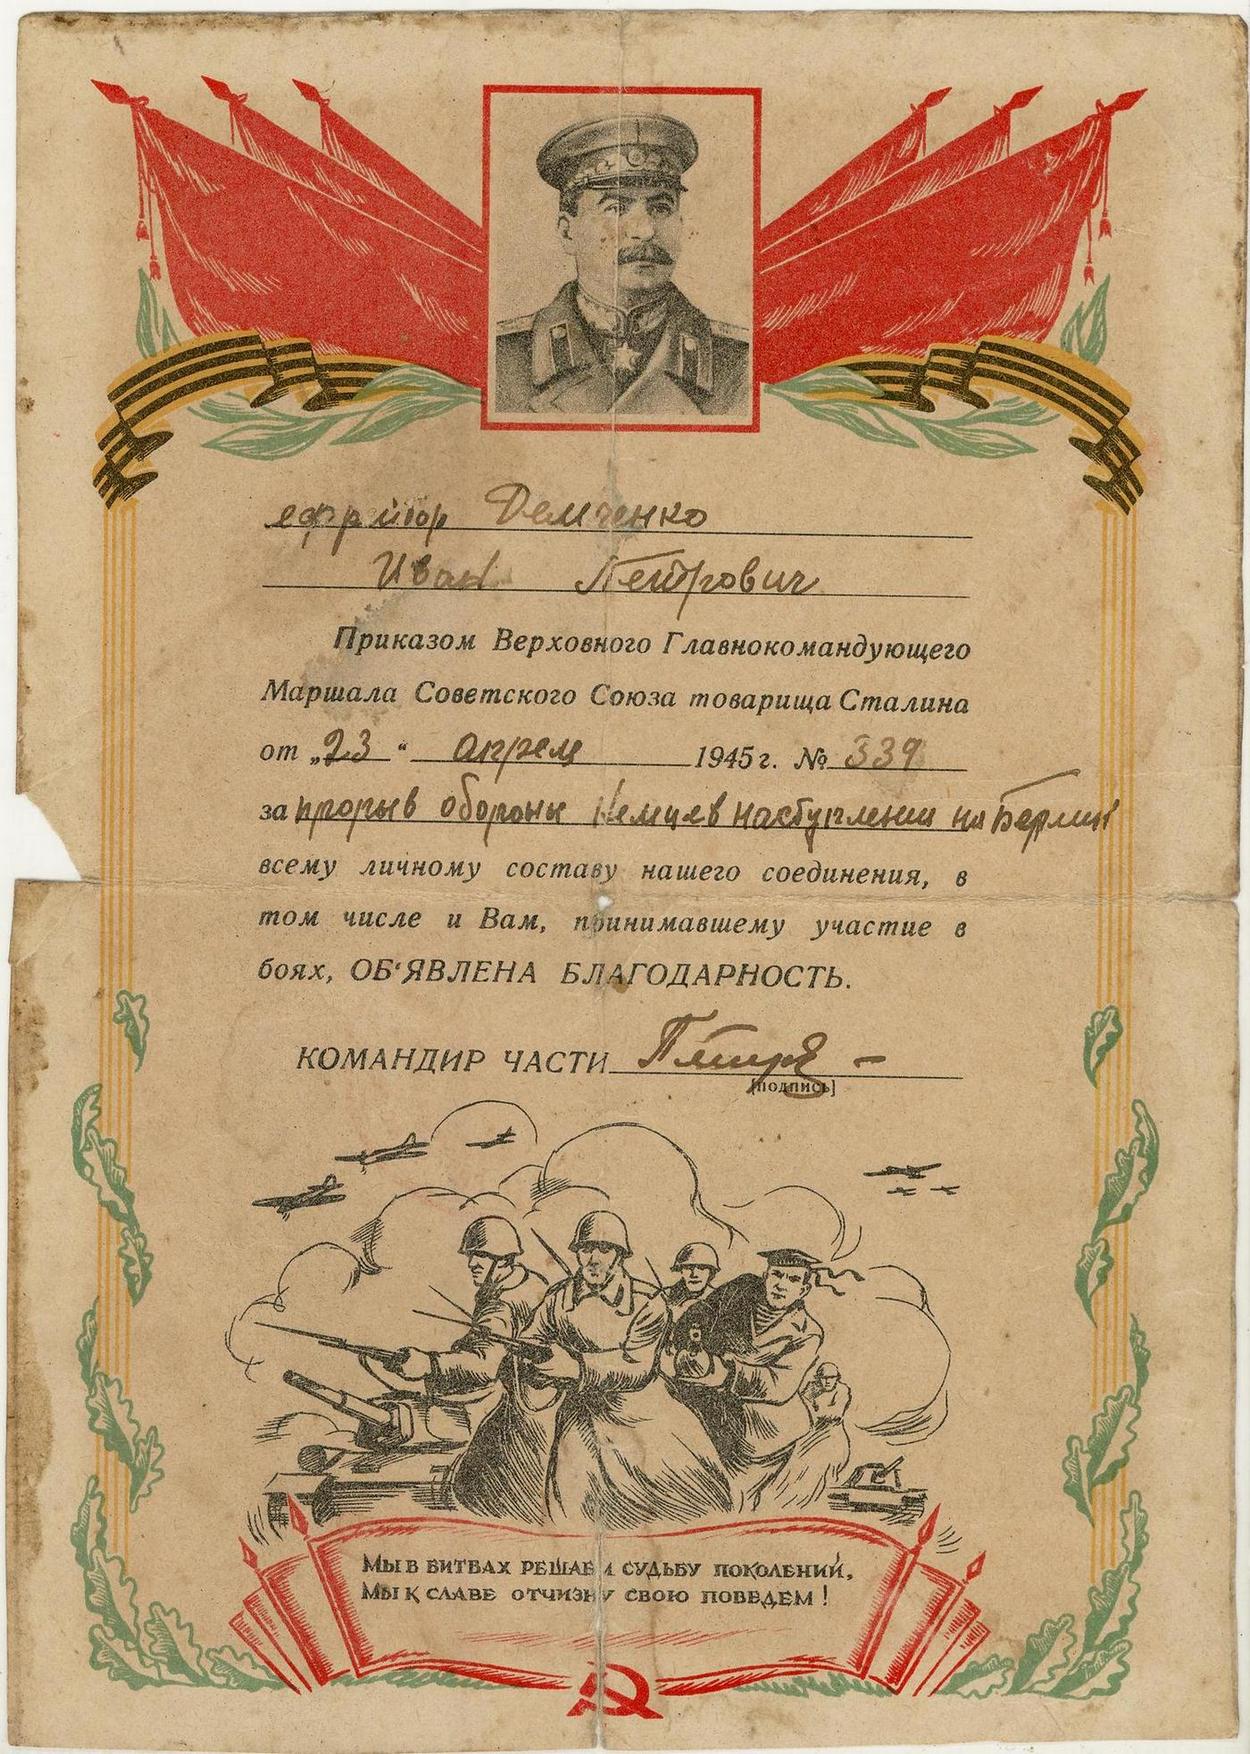 ефрейтор Демченко
Иван Петрович
Приказом Верховного Главнокомандующего
Маршала Советского Союза товарища Сталина
от „23“ апреля 1945 г. № 339
за прорыв обороны Немцев наступлении на Берлин
всему личному составу нашего соединения, в
том числе и Вам, принимавшему участие в
боях, ОБ‘ЯВЛЕНА БЛАГОДАРНОСТЬ.
КОМАНДИР ЧАСТИ
[подпись]
МЫ В БИТВАХ РЕШАЕМ СУДЬБУ ПОКОЛЕНИЙ,
МЫ К СЛАВЕ ОТЧИЗНУ СВОЮ ПОВЕДЕМ!